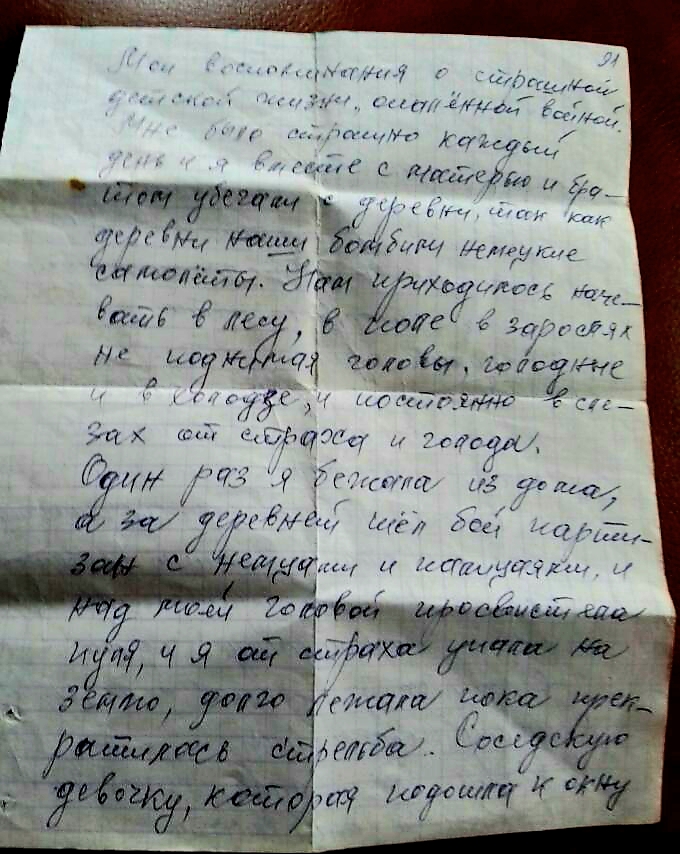 21
Мои воспоминания о страшной
детской жизни, опалённой войной.
Мне было страшно каждый
день и я вместе с матерью и бра-
том убегали с деревни, так как
деревни наши бомбили немецкие
самолёты. Нам приходилось наче-
вать в лесу, в поле в зарослях
не поднимая головы, голодные
и в холодзе, и постоянно в сле-
зах от страха и голода.
Один раз я бежала из дома,
а за деревней шёл бой парти-
зан с немцами и полицаями, и
над моей головой просвистела
пуля, и я от страха упала на
землю, долго лежала пока прек-
ратилась стрельба. Соседскую
девочку, которая подошла к окну